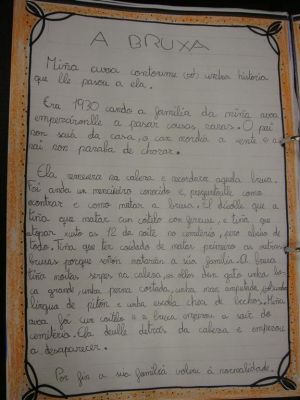 A BRUXA
Miña avoa contoume unha historia
que lle pasou a ela.
Era 1930 cando a familia da miña avoa
empezáronlle a pasar cousas raras. O pai
non saía da casa, o can mordía a xente e a
nai non paraba de chorar.
Ela remexera na cabeza e recordara aquela bruxa.
Foi onda un menciñeiro coñecido e preguntoulle como
acontrar e como matar a bruxa. El díxolle que a
tiña que matar cun coitelo con ferruxe, e tiña que
xusto as 12 da noite no cemiterio, pero antes de
todo. Tiña que ter coidado de matar primeiro as outras
bruxas porque senon matarían a súa familia. A bruxa
tiña moitas serpes na cabeza, os ollos dun gato, unha bo
ca grande, unha perna cortada, unha man amputada,
lingua de pitón e unha escoba chea de bechos. Miña
avoa fá cun coitelo e a bruxa empezou a saír do
cemiterio. Ela deulle detrás da cabeza e empezou
a desaparecer.
Por fin a súa familia volveu á normalidade.